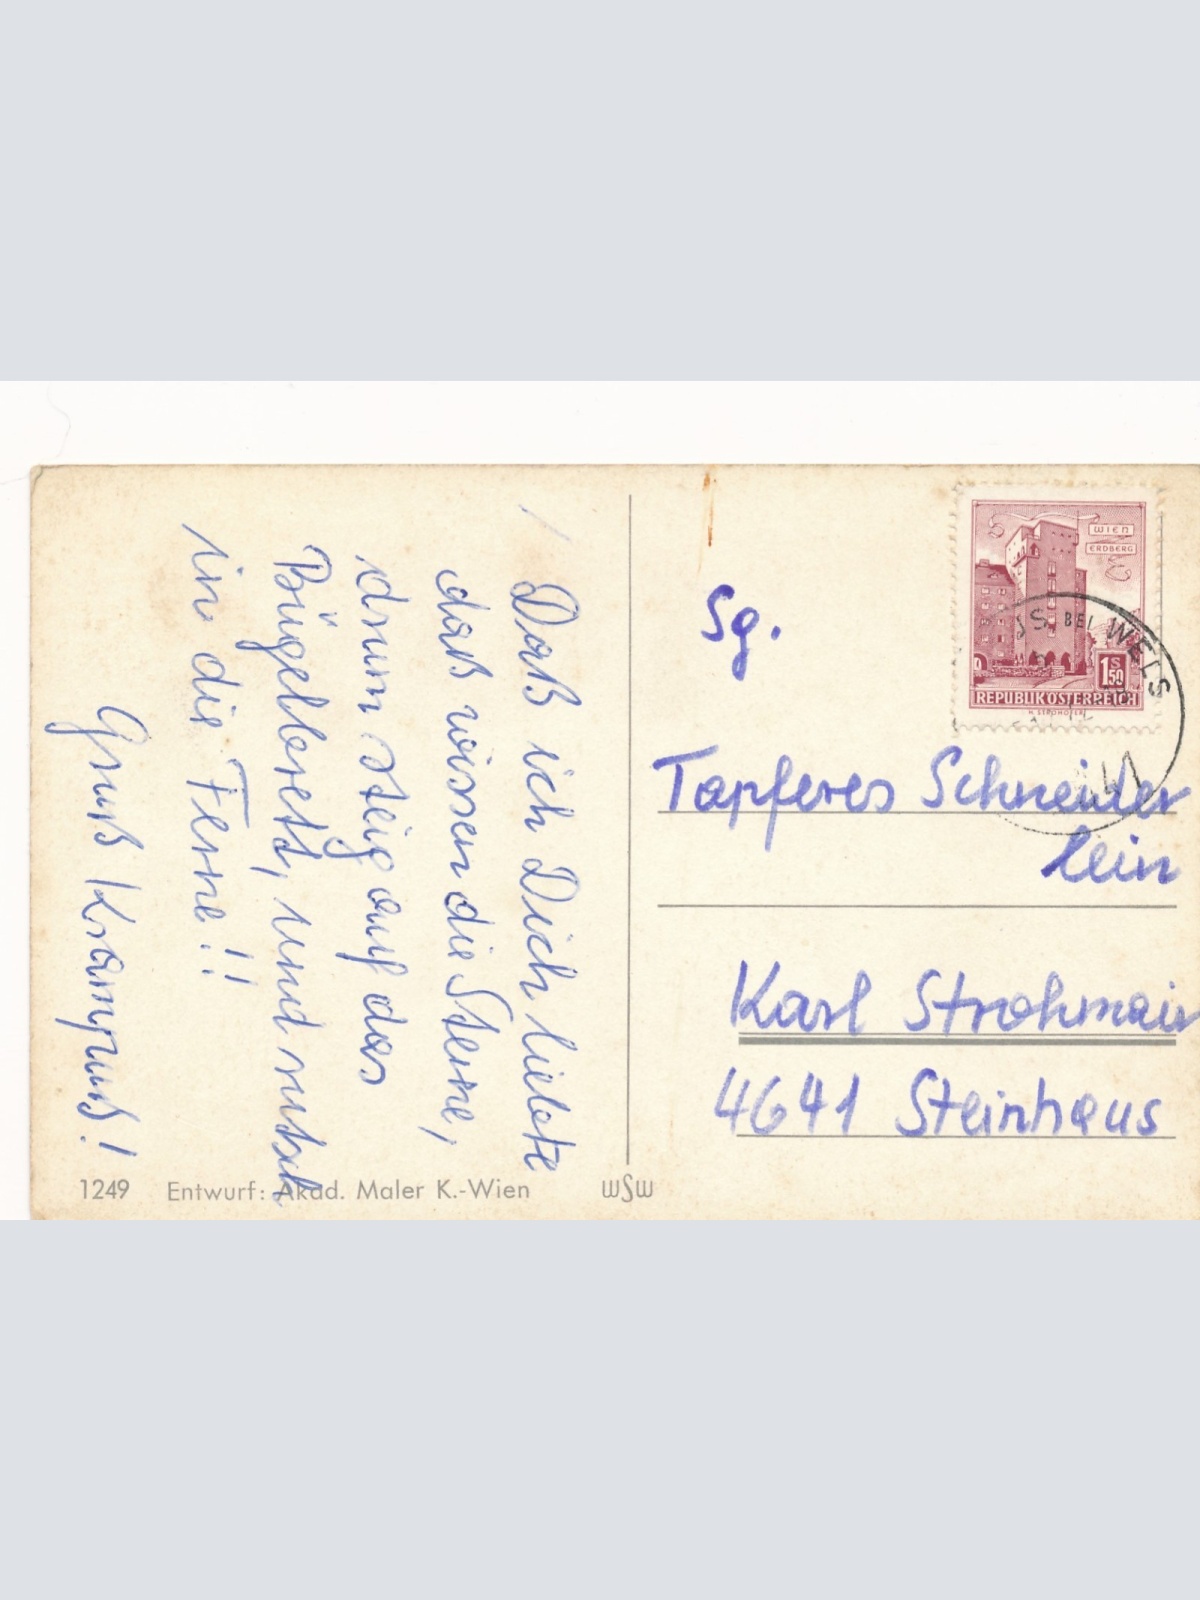 Daß ich Dich liebte
daß wissen die Sterne,
drum steig auf das
Bügelbrett, und rutsch
in die Ferne!!
Gruß Krampuß!
1249 Entwurf: Akad. Maler K.-Wien
WSW
WIEN
ERDBERG
S
1 50
REPUBLIK ÖSTERREICH
H. STROHOFER
BEI WELS
Sg.
Tapferes Schneider
lein
Karl Strohmair
4641 Steinhaus